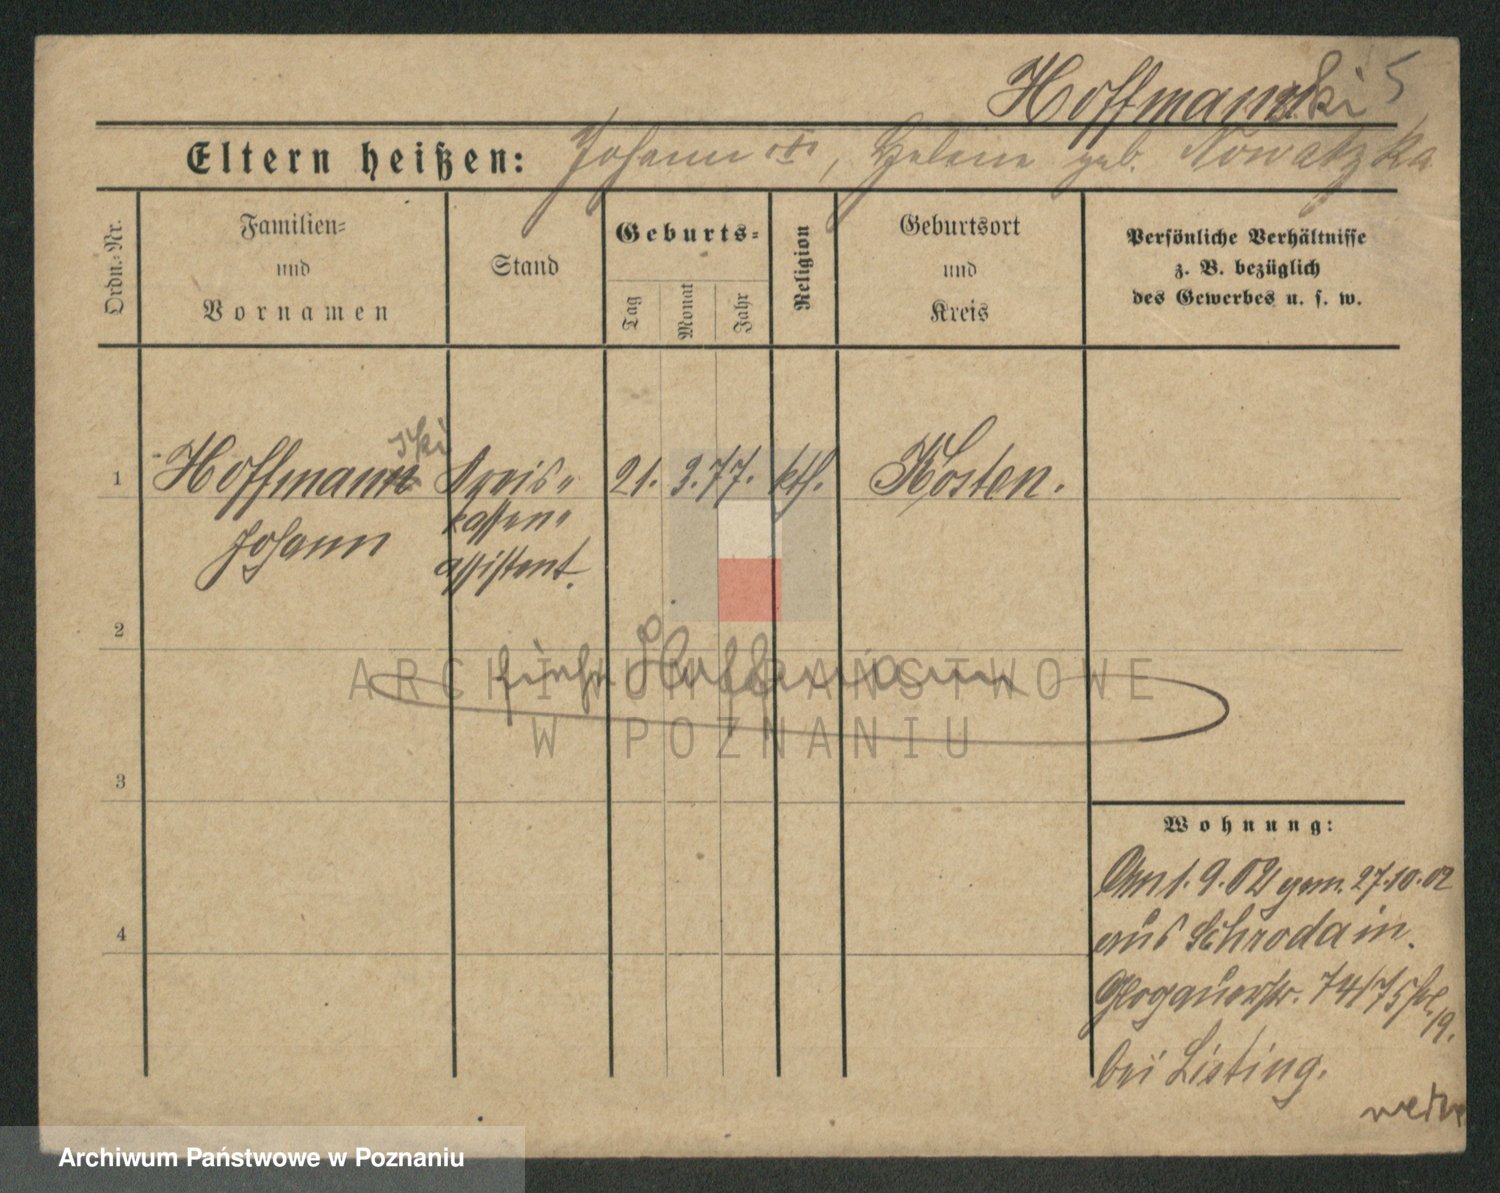 Hoffmanski 5
Eltern heißen: Johann, Helene geb. Nowatzka
Ordn.-Nr.
Familien-
und
Vornamen
Stand
Geburts-
Tag
Monat
Jahr
Religion
Geburtsort
und
Kreis
Persönliche Verhältnisse
z. B. bezüglich
des Gewerbes u. s. w.
ski
1 Hoffmann Kreis- 21. 3. 77. kth. Kosten.
Johann kassen-
assistent.
2
siehe Hoffmann
ARCHIWUM PAŃSTWOWE
W POZNANIU
3
Wohnung:
Am 1. 9. 02 gem. 27.10.02
4
aus Schroda in
Glogauerstr. 74/75
19.
bei Listing.
Archiwum Państwowe w Poznaniu